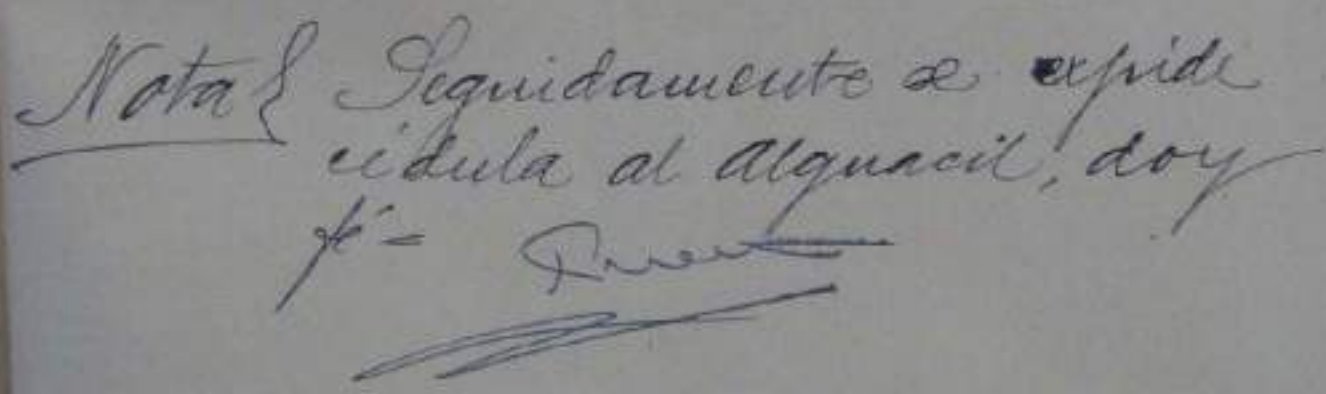 Nota { Seguidamente se expide
cédula al Alguacil, doy
fé -